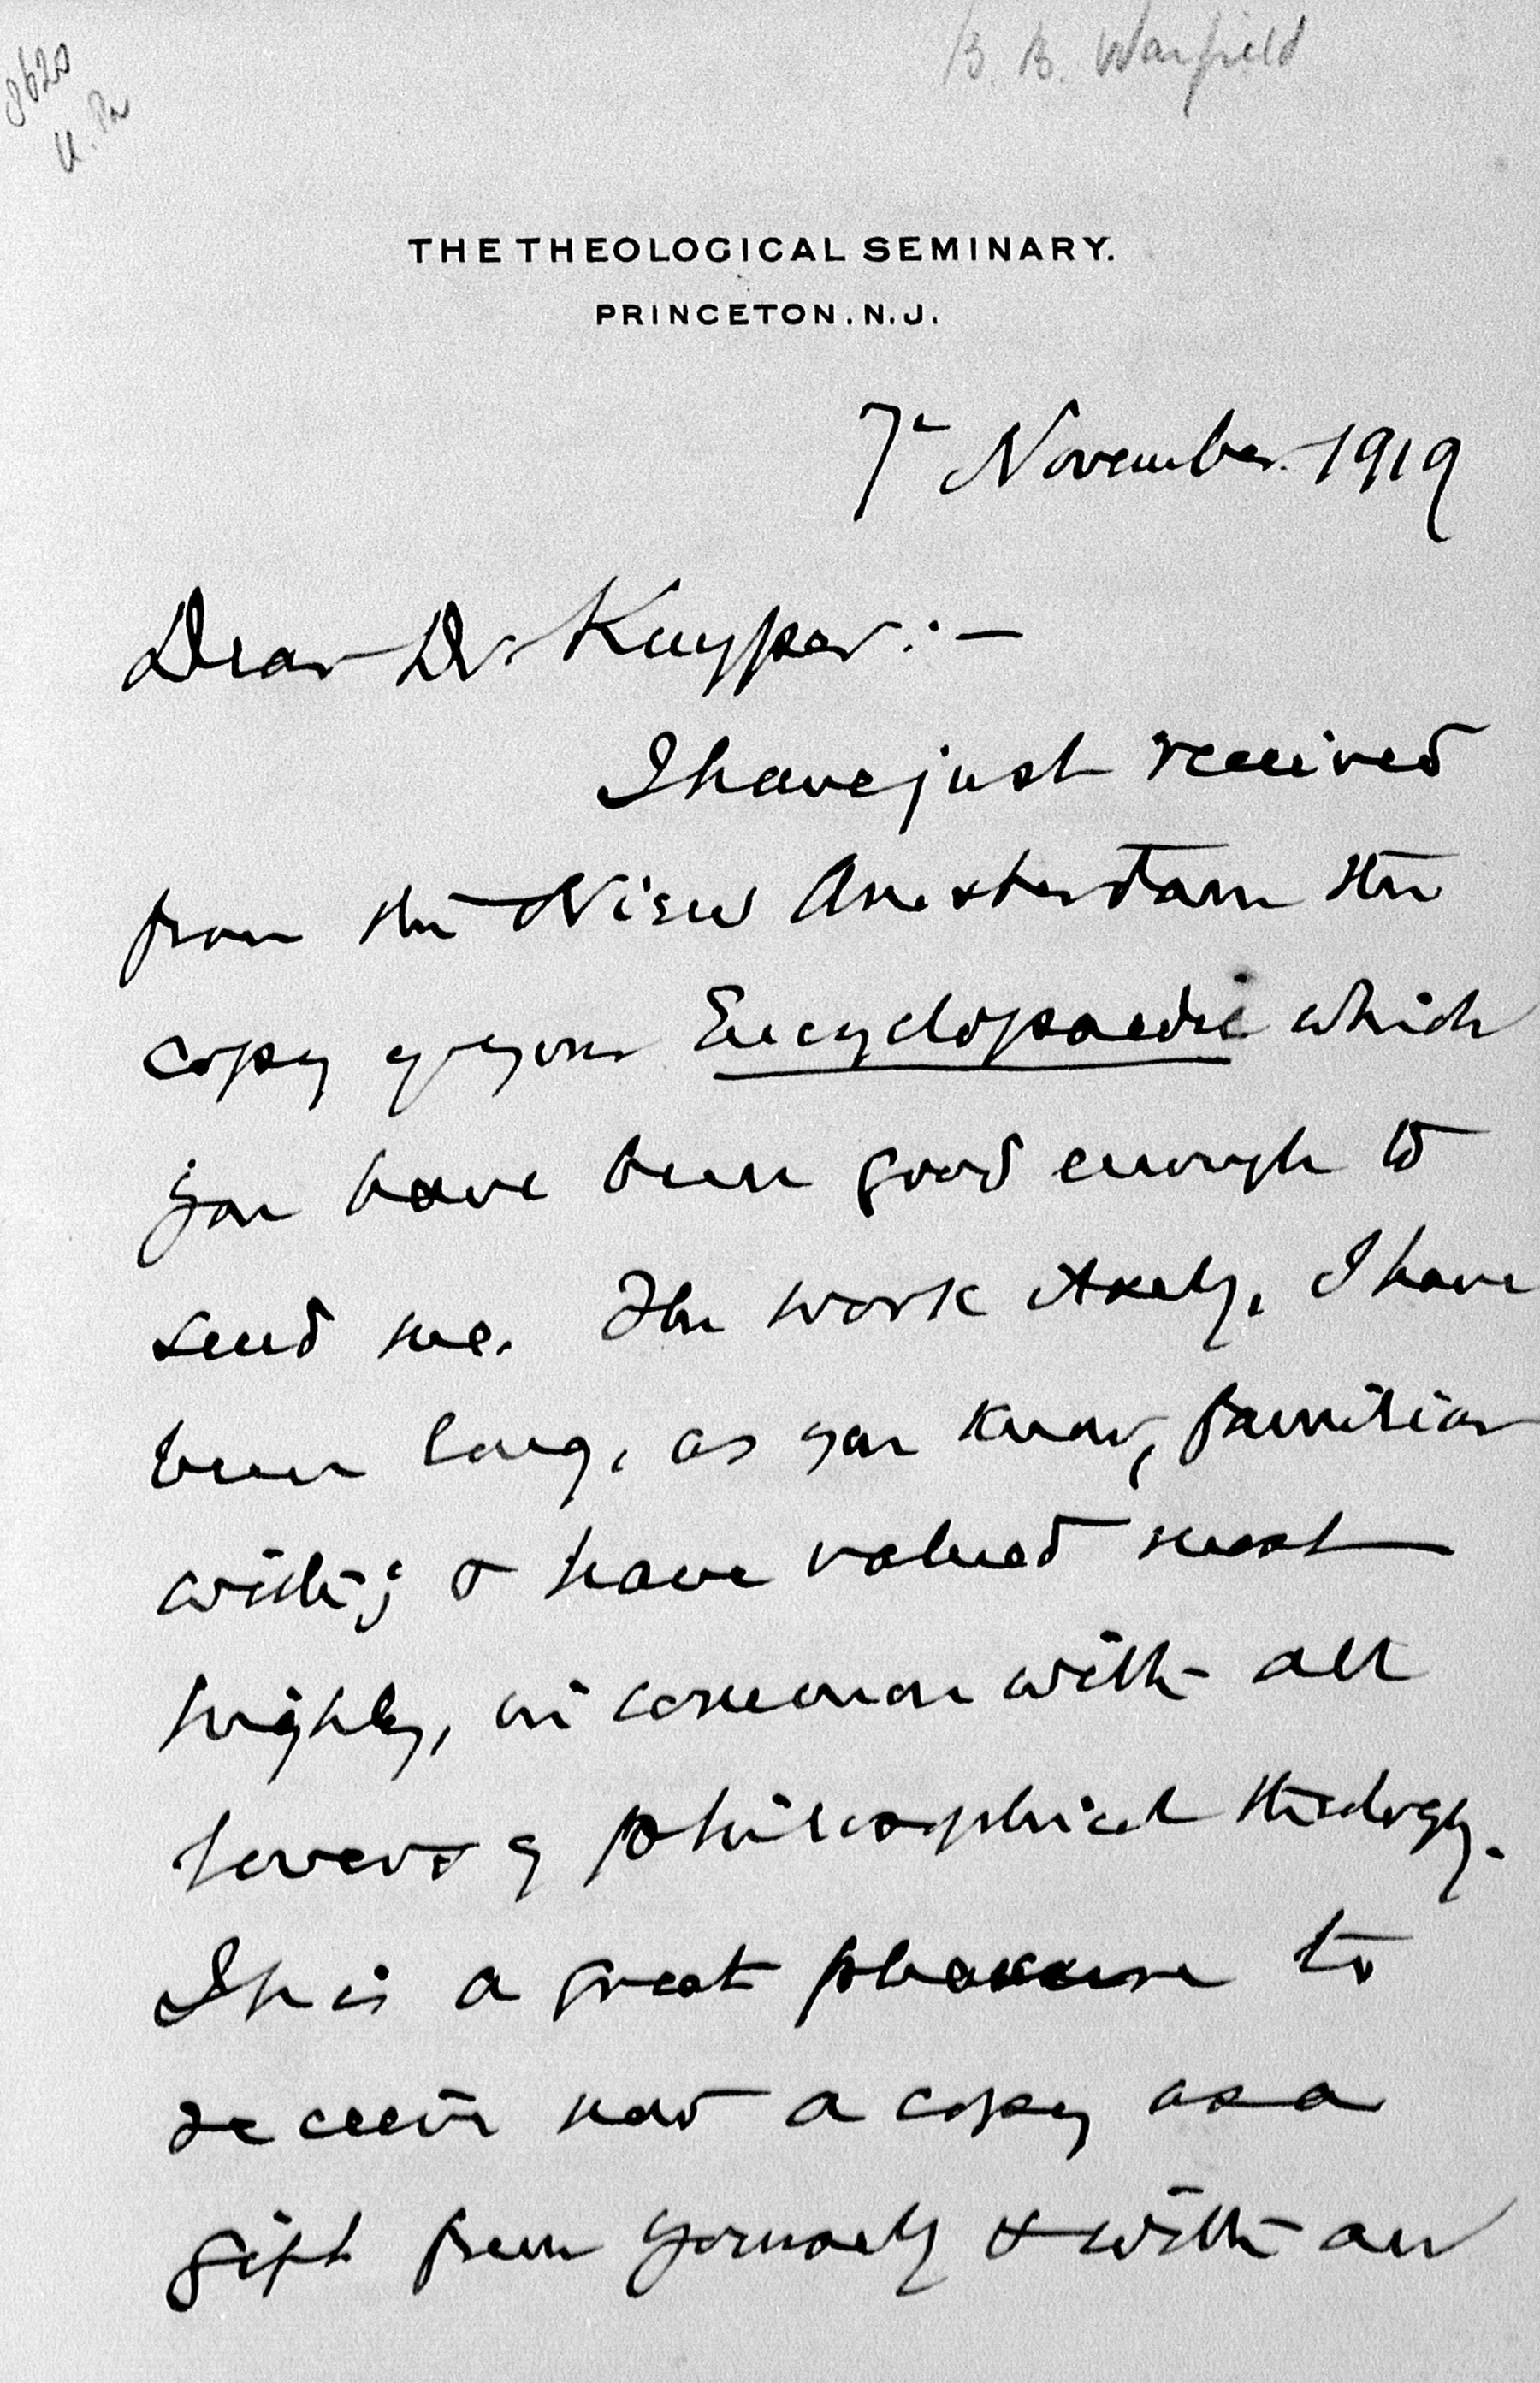 8620
B. B. Warfield
THE THEOLOGICAL SEMINARY.
PRINCETON. N. J.
7th November 1919
Dear Dr. Kuyper:—
I have just received
from the Nieuw Amsterdam the
copy of your Encyclopaedie which
you have been good enough to
send me. The work itself, I have
been long, as you know, familiar
with; & have valued most
highly, in common with all
lovers of philosophical theology.
It is a great pleasure to
receive now a copy as a
gift from yourself & with an